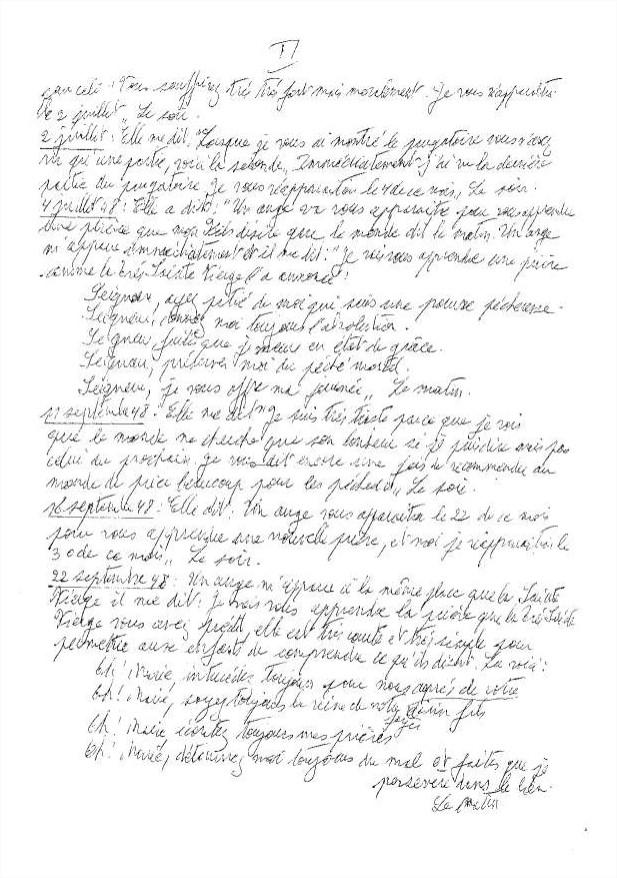 II
souffrirez très très fort mais moralement. Je vous réapparaîtrai
le 2 juillet" Le soir.
2 juillet : Elle me dit "Lorsque je vous ai montré le purgatoire vous n'avez
vu qu'une partie, voici la seconde" Immédiatement j'ai vu la dernière
partie du purgatoire. Je vous réapparaîtrai le 4 de ce mois" Le soir.
4 juillet 48 : Elle a dit : "Un ange va vous apparaître pour vous apprendre
une prière que mon Fils désire que le monde dit le matin. Un ange
m'apparut immédiatement et il me dit : "Je vais vous apprendre une prière
comme la Très Sainte Vierge l'a annoncé :
Seigneur, ayez pitié de moi qui suis une pauvre pécheresse.
Seigneur, donnez moi toujours l'absolution.
Seigneur, faites que je meure en état de grâce.
Seigneur, préservez moi du péché mortel.
Seigneur, je vous offre ma journée" Le matin.
septembre 48 : Elle me dit "Je suis très triste parce que je vois
que le monde ne cherche que son bonheur si je puis dire mais pas
celui du prochain. Je vous dit encore une fois de recommender au
monde de prier beaucoup pour les péchés" Le soir.
septembre 48 : Elle dit : Un ange vous apparaîtra le 22 de ce mois
pour vous apprendre une nouvelle prière, et moi je réapparaîtrai le
30 de ce mois" Le soir.
22 septembre 48 : Un ange m'apparut à la même place que la Sainte
Vierge il me dit : Je vais vous apprendre la prière que la Très Sainte
Vierge vous avez prédit, elle est très courte et très simple pour
permettre aux enfants de comprendre ce qu'ils disent. La voici :
Oh! Marie, intercédez toujours pour nous auprès de votre
divin fils
Oh! Marie, soyez toujours la reine de notre foyer
Oh! Marie écoutez toujours mes prières
Oh! Marie, détournez moi toujours du mal et faites que je
persévère dans le bien.
Le matin